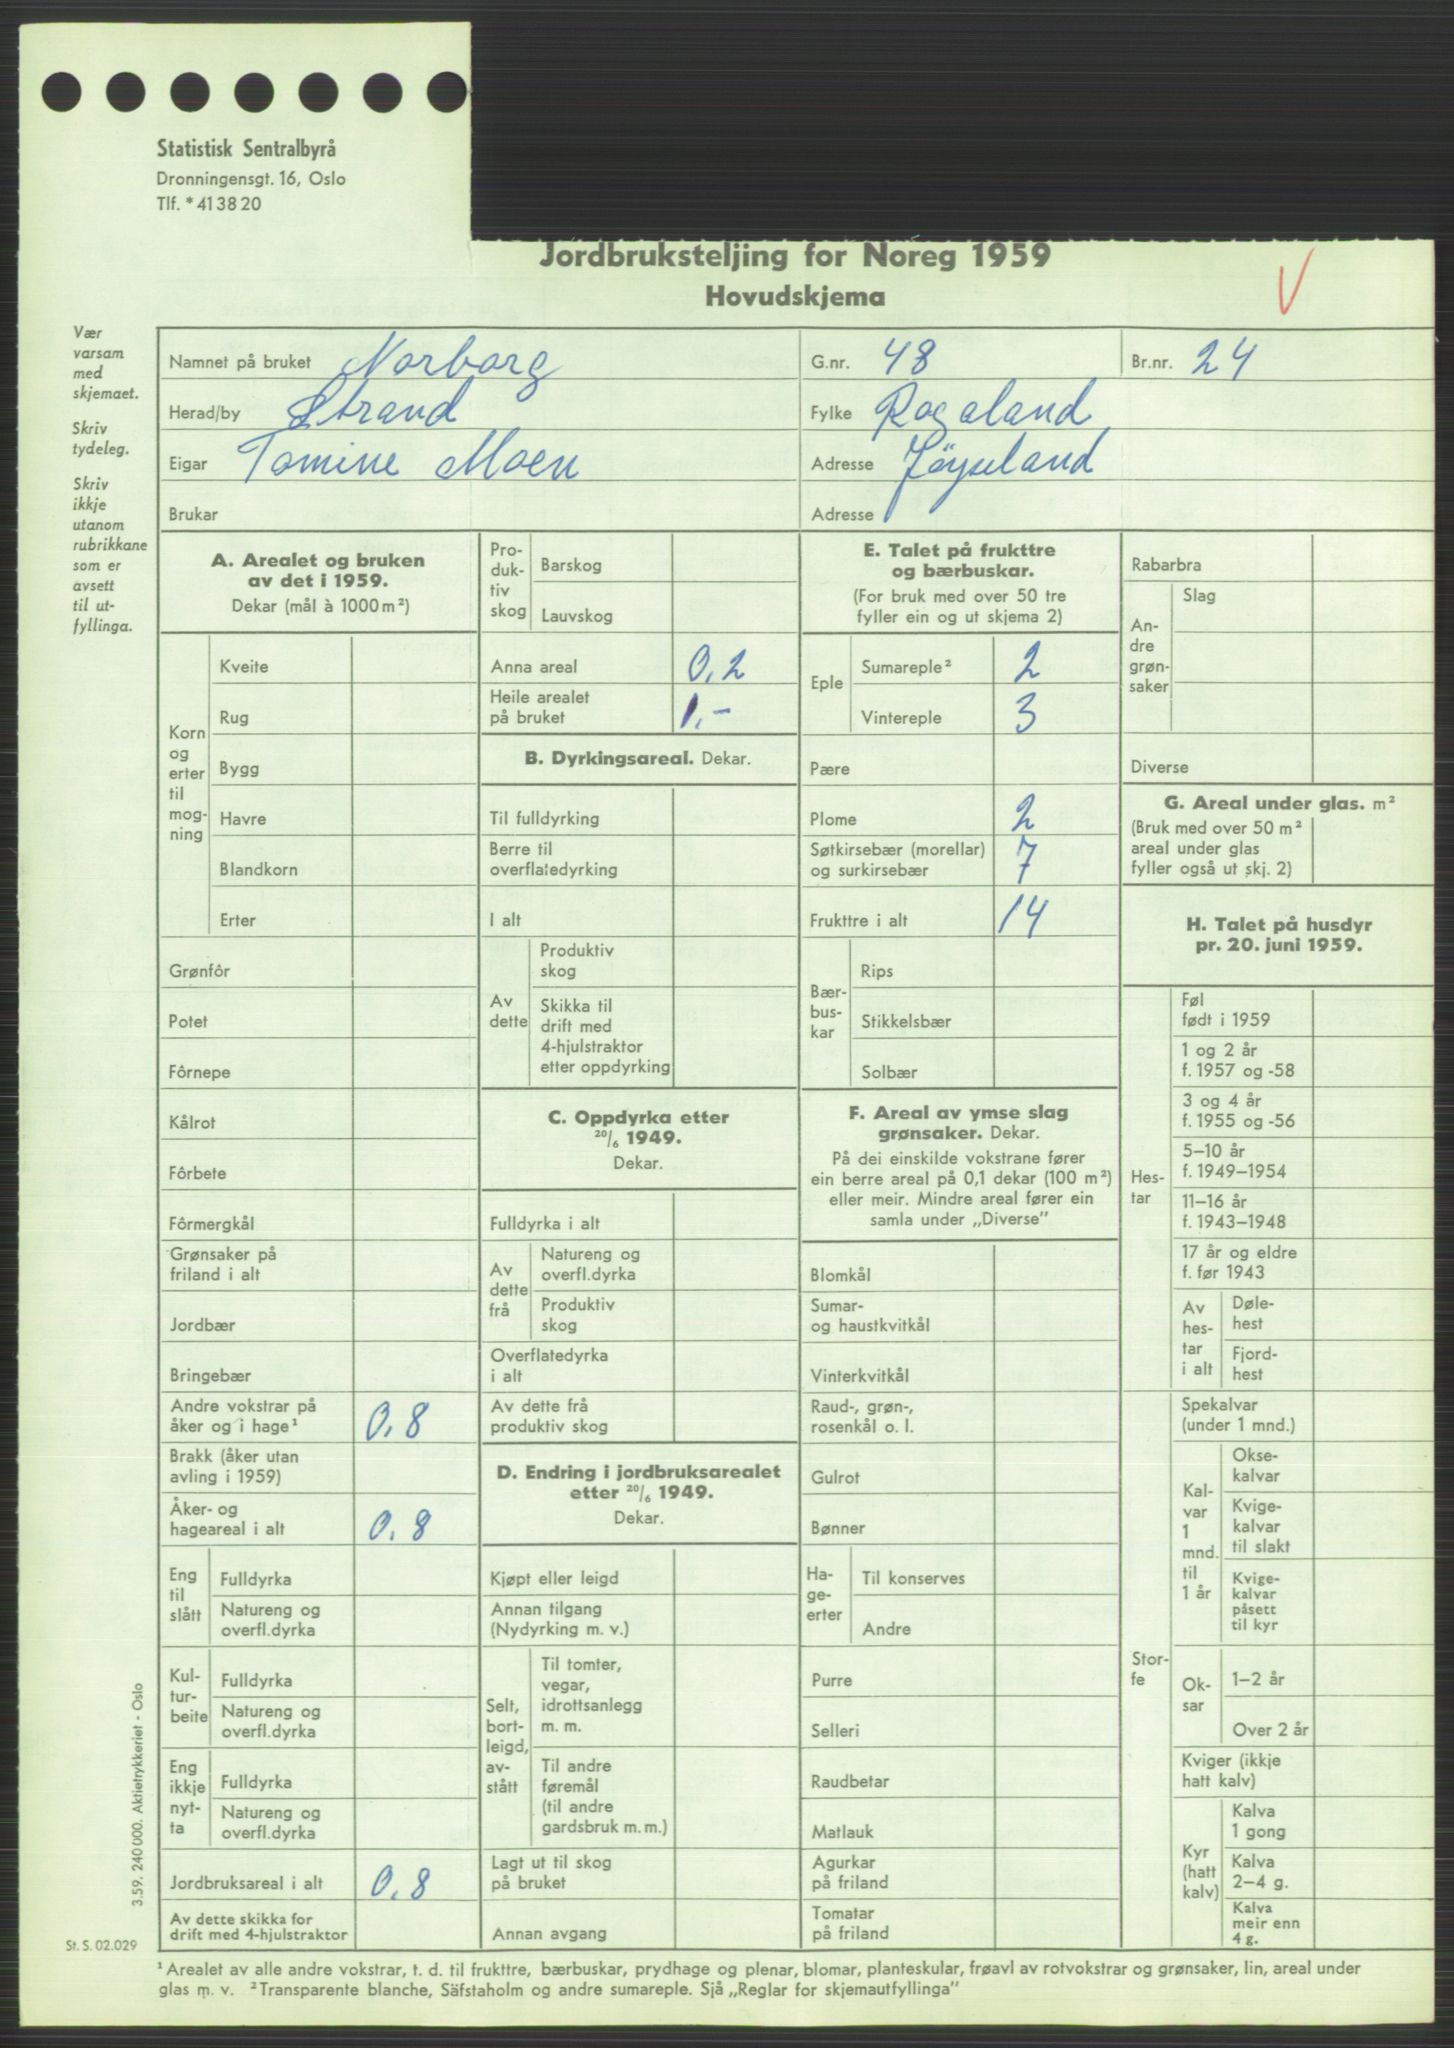 Statistisk Sentralbyrå
Dronningensgt. 16, Oslo
Tlf. * 41 38 20
Jordbruksteljing for Noreg 1959
Hovudskjema
V
Vær
varsam
med
skjemaet.
Skriv
tydeleg.
Skriv
ikkje
utanom
rubrikkane
som er
avsett
til ut-
fyllinga.
Namnet på bruket Norborg
G.nr. 48
Br.nr. 24
Herad/by Strand
Fylke Rogaland
Eigar Tomine Moen
Adresse Jøyseland
Brukar
Adresse
A. Arealet og bruken
av det i 1959.
Dekar (mål à 1000 m²)
Korn
og
erter
til
mog-
ning
Kveite
Rug
Bygg
Havre
Blandkorn
Erter
Grønfôr
Potet
Fôrnepe
Kålrot
Fôrbete
Fôrmergkål
Grønsaker på
friland i alt
Jordbær
Bringebær
Andre vokstrar på
åker og i hage¹ 0,8
Brakk (åker utan
avling i 1959)
Åker- og
hageareal i alt 0,8
Eng
til
slått
Fulldyrka
Natureng og
overfl.dyrka
Kul-
tur-
beite
Fulldyrka
Natureng og
overfl.dyrka
Eng
ikkje
nyt-
ta
Fulldyrka
Natureng og
overfl.dyrka
Jordbruksareal i alt 0,8
Av dette skikka for
drift med 4-hjulstraktor
Pro-
duk-
tiv
skog
Barskog
Lauvskog
Anna areal 0,2
Heile arealet
på bruket 1,-
B. Dyrkingsareal. Dekar.
Til fulldyrking
Berre til
overflatedyrking
I alt
Av
dette
Produktiv
skog
Skikka til
drift med
4-hjulstraktor
etter oppdyrking
C. Oppdyrka etter
20/6 1949.
Dekar.
Fulldyrka i alt
Av
dette
frå
Natureng og
overfl.dyrka
Produktiv
skog
Overflatedyrka
i alt
Av dette frå
produktiv skog
D. Endring i jordbruksarealet
etter 20/6 1949.
Dekar.
Kjøpt eller leigd
Annan tilgang
(Nydyrking m. v.)
Selt,
bort-
leigd,
av-
stått
Til tomter,
vegar,
idrottsanlegg
m. m.
Til andre
føremål
(til andre
gardsbruk m. m.)
Lagt ut til skog
på bruket
Annan avgang
E. Talet på frukttre
og bærbuskar.
(For bruk med over 50 tre
fyller ein og ut skjema 2)
Eple
Sumareple² 2
Vintereple 3
Pære
Plome 2
Søtkirsebær (morellar)
og surkirsebær 7
Frukttre i alt 14
Bær-
bus-
kar
Rips
Stikkelsbær
Solbær
F. Areal av ymse slag
grønsaker. Dekar.
På dei einskilde vokstrane fører
ein berre areal på 0,1 dekar (100 m²)
eller meir. Mindre areal fører ein
samla under „Diverse”
Blomkål
Sumar-
og haustkvitkål
Vinterkvitkål
Raud-, grøn-,
rosenkål o. l.
Gulrot
Bønner
Ha-
ge-
erter
Til konserves
Andre
Purre
Selleri
Raudbetar
Matlauk
Agurkar
på friland
Tomatar
på friland
Rabarbra
An-
dre
grøn-
saker
Slag
Diverse
G. Areal under glas. m²
(Bruk med over 50 m²
areal under glas
fyller også ut skj. 2)
H. Talet på husdyr
pr. 20. juni 1959.
Hes-
tar
Føl
født i 1959
1 og 2 år
f. 1957 og -58
3 og 4 år
f. 1955 og -56
5–10 år
f. 1949–1954
11–16 år
f. 1943–1948
17 år og eldre
f. før 1943
Av
hes-
tar
i alt
Døle-
hest
Fjord-
hest
Stor-
fe
Spekalvar
(under 1 mnd.)
Kal-
var
1
mnd.
til
1 år
Okse-
kalvar
Kvige-
kalvar
til slakt
Kvige-
kalvar
påsett
til kyr
Ok-
sar
1–2 år
Over 2 år
Kviger (ikkje
hatt kalv)
Kyr
(hatt
kalv)
Kalva
1 gong
Kalva
2–4 g.
Kalva
meir enn
4 g.
3.59. 240 000. Aktietrykkeriet - Oslo
St. S. 02.029
¹ Arealet av alle andre vokstrar, t. d. til frukttre, bærbuskar, prydhage og plenar, blomar, planteskular, frøavl av rotvokstrar og grønsaker, lin, areal under
glas m. v. ² Transparente blanche, Säfstaholm og andre sumareple. Sjå „Reglar for skjemautfyllinga”